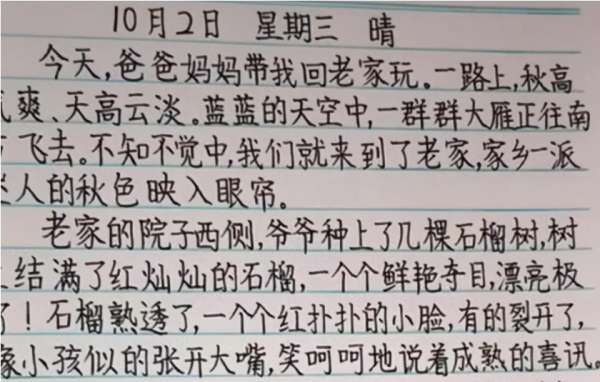 10月2日 星期三 晴
今天,爸爸妈妈带我回老家玩。一路上,秋高
气爽、天高云淡。蓝蓝的天空中,一群群大雁正往南
方飞去。不知不觉中,我们就来到了老家,家乡一派
迷人的秋色映入眼帘。
老家的院子西侧,爷爷种上了几棵石榴树,树
上结满了红灿灿的石榴,一个个鲜艳夺目,漂亮极
了!石榴熟透了,一个个红扑扑的小脸,有的裂开了,
像小孩似的张开大嘴,笑呵呵地说着成熟的喜讯。